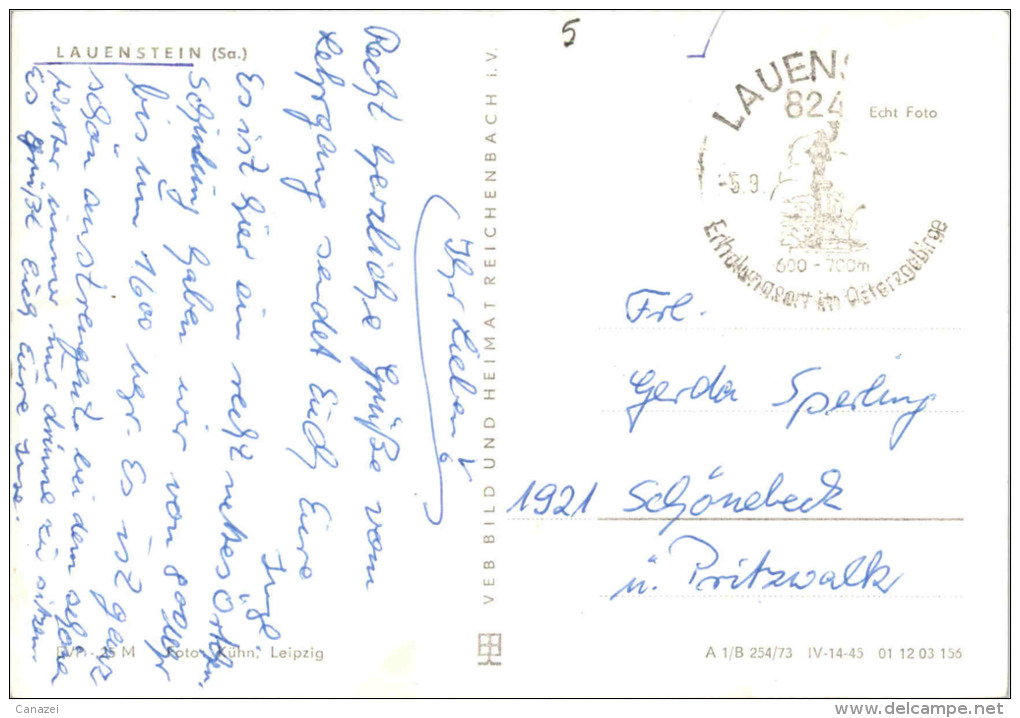 LAUENSTEIN (Sa.)
Ihr Lieben!
Recht herzliche Grüße vom
Lehrgang sendet Euch Eure
Inge
Es ist hier ein recht nettes Örtchen.
Schulung haben wir von 8 00 Uhr
bis um 1600 Uhr. Es ist ganz
schön anstrengend bei dem schönen
Wetter immer nur drinne zu sitzen.
Es grüßt Euch Eure Inge.
EVP -,25 M Foto: Kühn, Leipzig
VEB BILD UND HEIMAT REICHENBACH i. V.
5
LAUENS
824
-5.9.
600 - 700m
Erholungsort im Osterzgebirge
Echt Foto
Frl.
Gerda Sperling
1921 Schönebeck
ü. Pritzwalk
A 1/B 254/73 IV-14-45 01 12 03 156
Canazei
www.delcampe.net